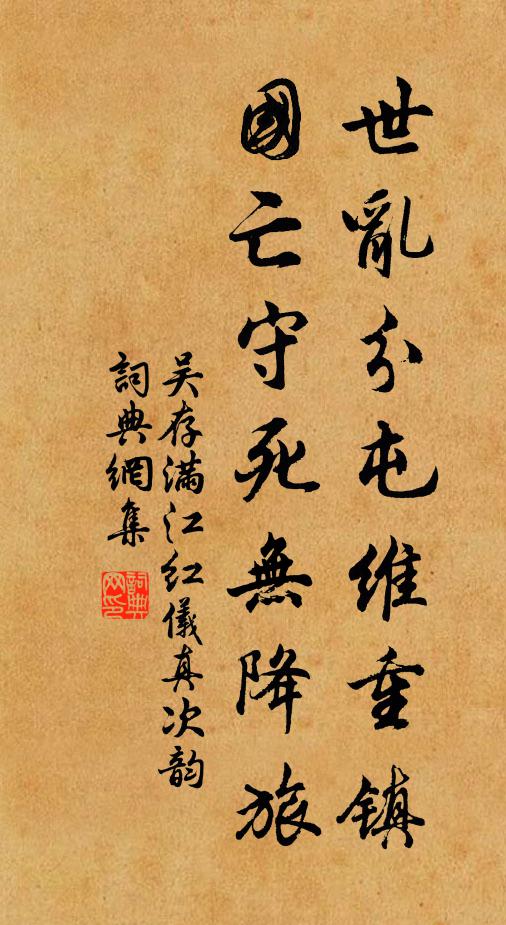 世亂分屯維重鎮
國亡守死無降旅
吴存满江红儀真次韵
詞典網集
詞典网印